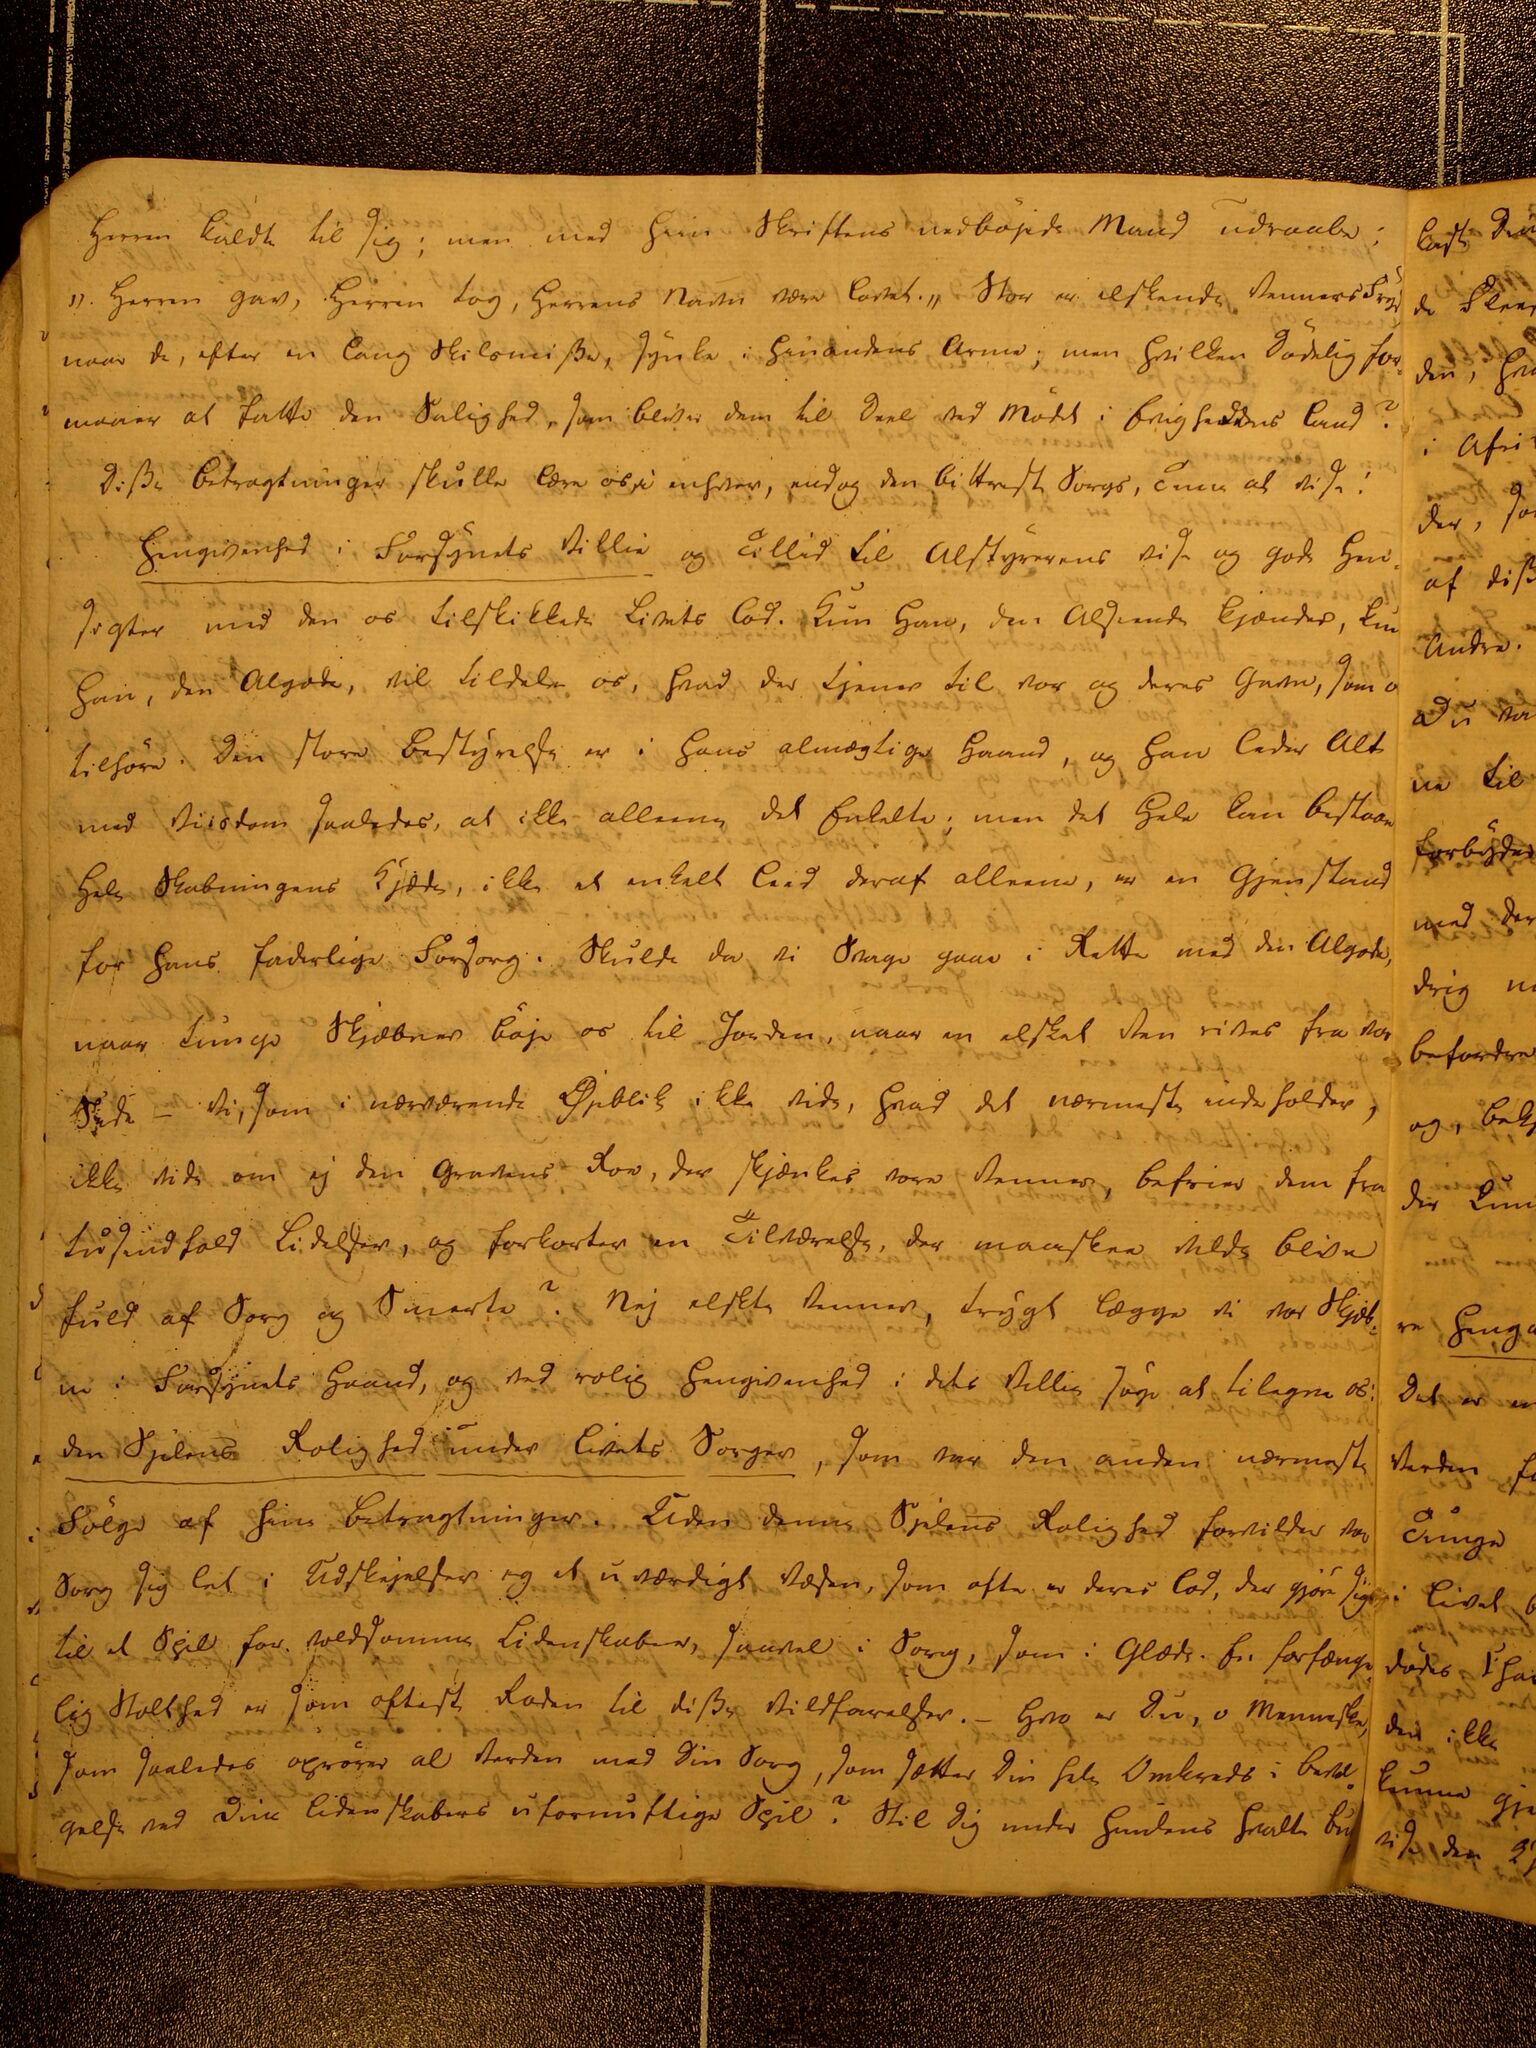 Herren kaldte til sig; men med hiin Skriftens nedbøjede Mand udraabe:
"Herren gav, Herren tog, Herrens Navn være lovet." Stor er elskende Venners Fryd
naar de, efter en lang Skilsmisse, synke i hinandens Arme; men hvilken Dødelig for-
maaer at fatte den Salighed, som bliver dem til Deel ved Mødet i Evighedens Land?
Disse Betragtninger skulle lære os, i enhver, endog den bittreste Sorgs, Time at vise:
Hengivenhed i Forsynets Villie og Tillid til Alstyrerens vise og gode Hen-
sigter med den os tilskikkede Livets Lod. Kun Han, den Alseende kjender, kun
Han, den Algode, vil tildele os, hvad der tjener til vor og deres Gavn, som o
tilhøre. Den store Bestyrelse er i Hans almægtige Haand, og Han leder Alt
med Viisdom saaledes, at ikke alleene det Enkelte; men det Hele kan bestaae
Hele Skabningens Kjæde, ikke et enkelt Leed deraf alleene, er en Gjenstand
for Hans faderlige Forsorg. Skulde da vi Svage gaae i Rette med den Algode,
naar tunge Skjæbner bøje os til Jorden, naar en elsket Ven rives fra vor
Side – vi, som i nærværende Øjeblik ikke vide, hvad det nærmeste indeholder,
ikke vide om ej den Gravens Roe, der skjænkes vore Venner, befrier dem fra
tusindfold Lidelser, og forkorter en Tilværelse, der maaskee vilde blive
fuld af Sorg og Smerte? Nej elskte Venner, trygt lægge vi vor Skjæb-
ne i Forsynets Haand, og ved rolig Hengivenhed i dets Villie søge at tilegne os:
den Sjelens Rolighed under Livets Sorger, som var den anden nærmeste
Følge af hine Betragtninger. Uden denne Sjelens Rolighed forvilder vor
Sorg sig let i Udskejelser og et uværdigt Væsen, som ofte er deres Lod, der gjøre sig
til et Spil for voldsomme Lidenskaber, saavel i Sorg, som i Glæde. En forfænge-
lig Stolthed er som oftest Roden til disse Vildfarelser. – Hvo er Du, o Menneske,
som saaledes oprører al Verden med Din Sorg, som sætter Din hele Omkreds i Bevæ-
gelse ved Dine Lidenskabers ufornuftige Spil? Stil Dig under Himlens hvalte Bu